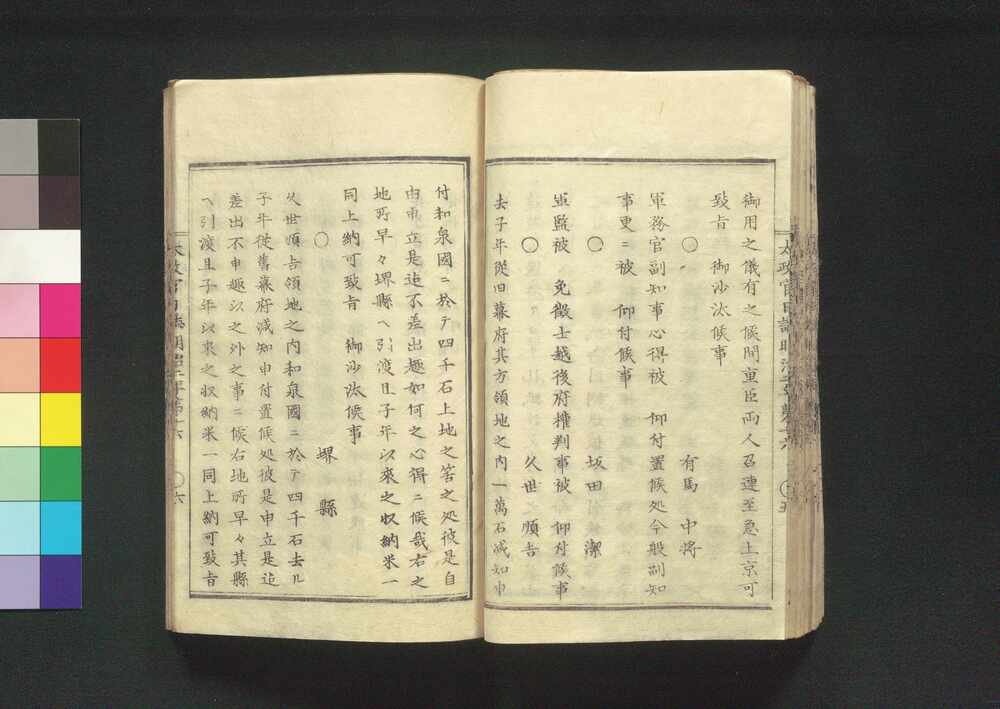 御用之儀有之候間重臣両人召連至急上京可
致旨　御沙汰候事
○　　有馬　中将
軍務官副知事心得被　仰付置候処今般副知
事更ニ被　仰付候事
○　　坂田　潔
軍監被　免徴士越後府権判事被　仰付候事
○　　久世　順吉
去子年従旧幕府其方領地之内一萬石減知申
付和泉國ニ於テ四千石上地之筈之処彼是自
由申立是迄不差出趣如何之心得ニ候哉右之
地所早々堺縣ヘ引渡且子年以來之収納米一
同上納可致旨　御沙汰候事
○　　堺　縣
久世順吉領地之内和泉國ニ於テ四千石去ル
子年従舊幕府減知申付置候処彼是申立是迄
差出不申趣以之外之事ニ候右地所早々其縣
ヘ引渡且子年以來之収納米一同上納可致旨
太政官日誌明治二年第十六　○六